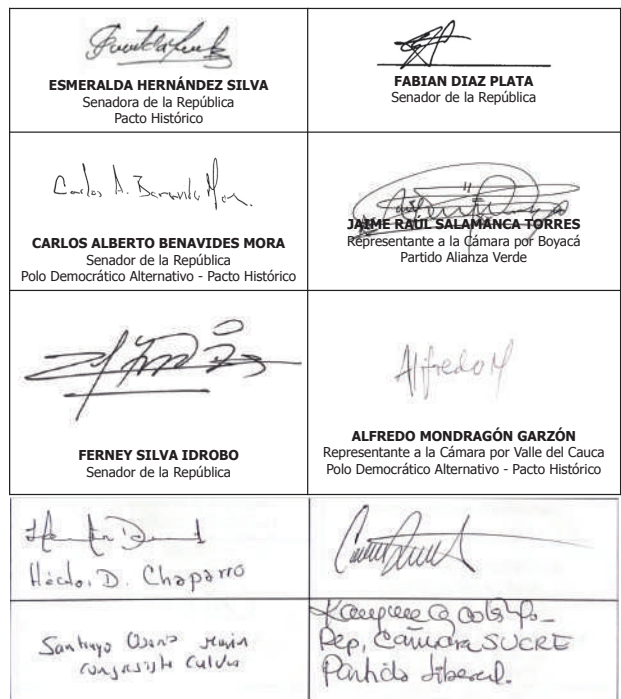 ESMERALDA HERNÁNDEZ SILVA
Senadora de la República
Pacto Histórico
FABIAN DIAZ PLATA
Senador de la República
Carlos A. Benavides Mora.
CARLOS ALBERTO BENAVIDES MORA
Senador de la República
Polo Democrático Alternativo - Pacto Histórico
JAIME RAÚL SALAMANCA TORRES
Representante a la Cámara por Boyacá
Partido Alianza Verde
FERNEY SILVA IDROBO
Senador de la República
Alfredo M
ALFREDO MONDRAGÓN GARZÓN
Representante a la Cámara por Valle del Cauca
Polo Democrático Alternativo - Pacto Histórico
Héctor. D. Chaparro
Santiago
congresista
Rep. Cámara SUCRE
Partido Liberal.